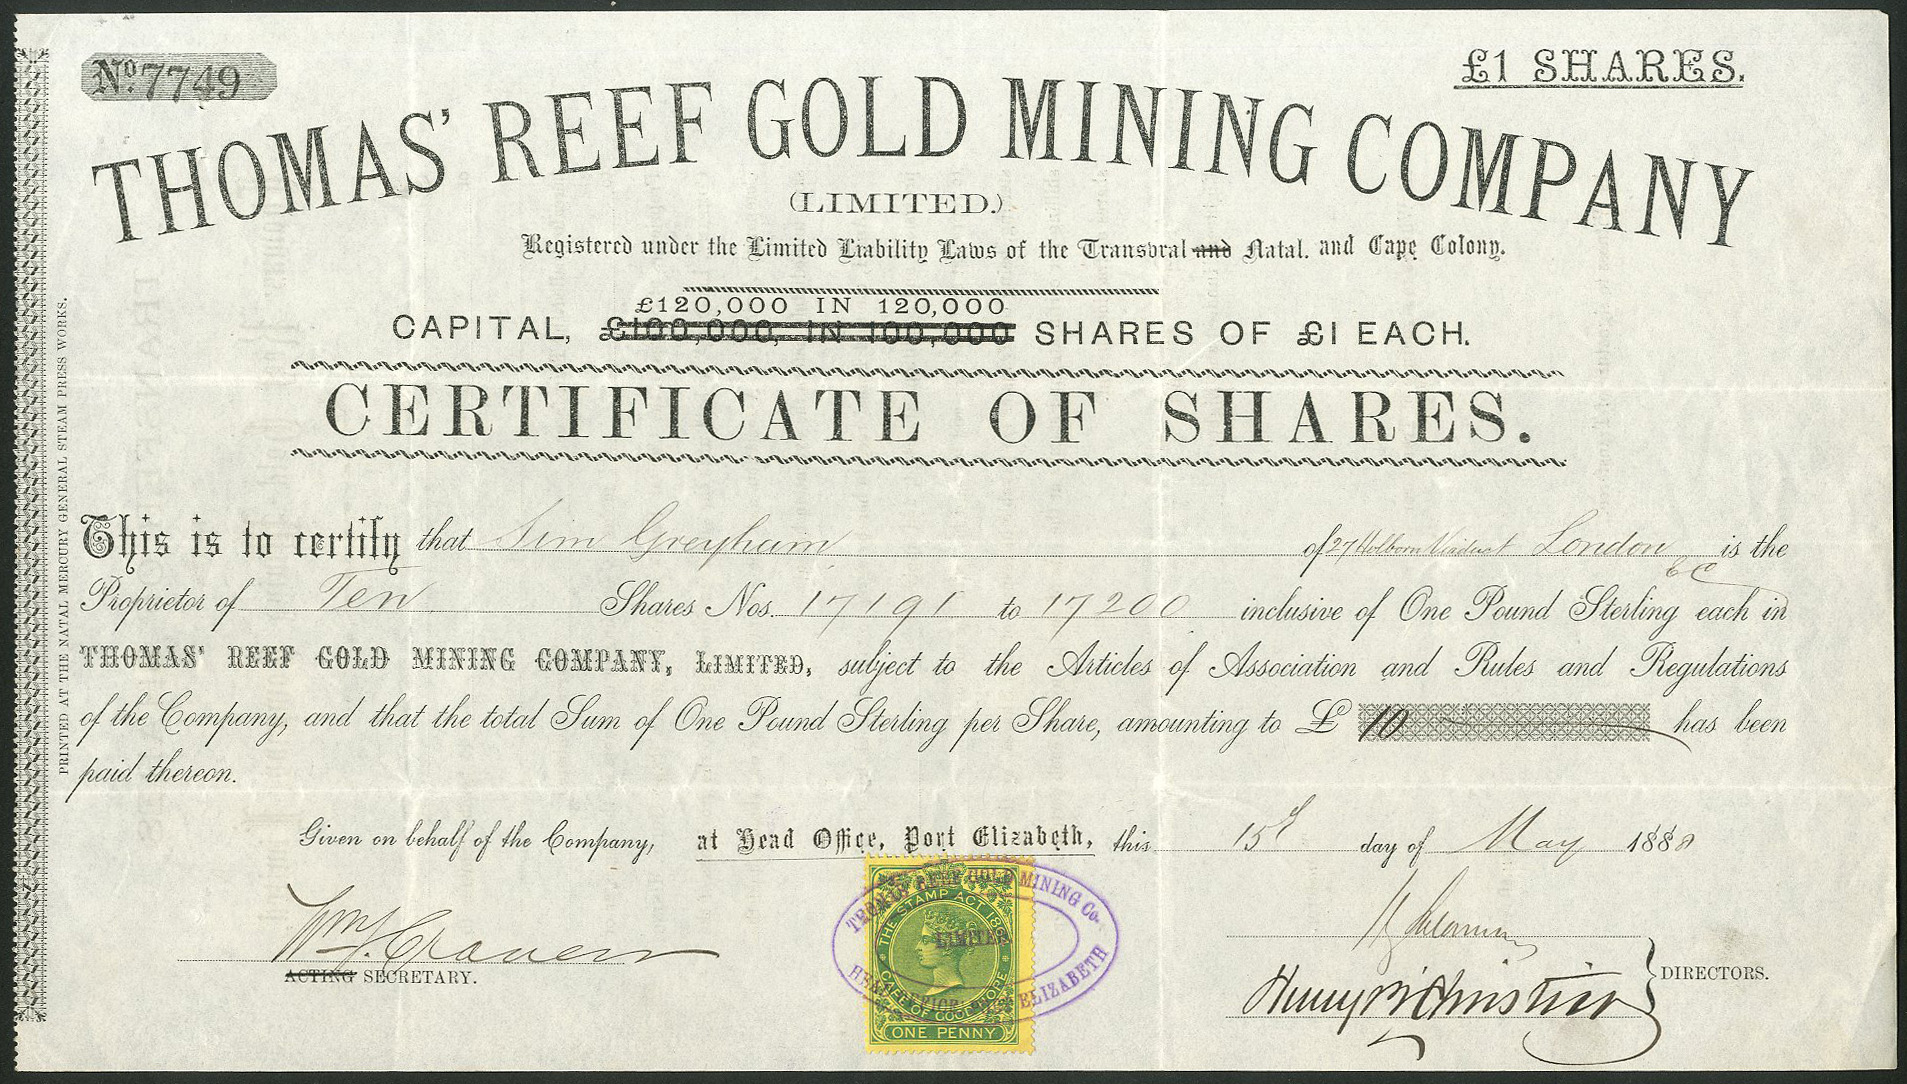 No. 7749
£1 SHARES.
THOMAS' REEF GOLD MINING COMPANY
(LIMITED.)
Registered under the Limited Liability Laws of the Transvral and Natal. and Cape Colony.
£120,000 IN 120,000
CAPITAL, £100,000, IN 100,000 SHARES OF £1 EACH.
CERTIFICATE OF SHARES.
This is to certify that Sim Greyham of 27 Holborn Viaduct London EC is the
Proprietor of Ten Shares Nos. 17191 to 17200 inclusive of One Pound Sterling each in
THOMAS' REEF GOLD MINING COMPANY, LIMITED, subject to the Articles of Association and Rules and Regulations
of the Company, and that the total Sum of One Pound Sterling per Share, amounting to £ 10 has been
paid thereon.
Given on behalf of the Company, at Head Office, Port Elizabeth, this 15th day of May 1888
Wm J. Craven
ACTING SECRETARY.
Henry W Christian
DIRECTORS.
THOMAS' REEF GOLD MINING Co.
LIMITED
HEAD OFFICE PORT ELIZABETH
THE STAMP ACT 1864
CAPE OF GOOD HOPE
ONE PENNY
PRINTED AT THE NATAL MERCURY GENERAL STEAM PRESS WORKS.